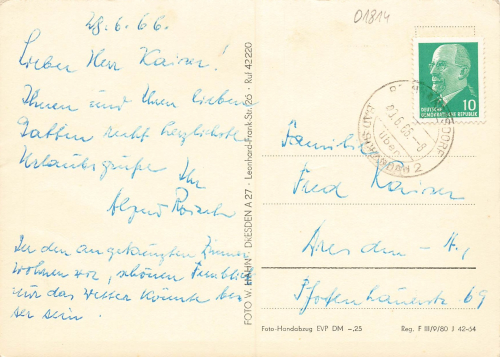 28.6.66.
Lieber Herr Kaiser!
Ihnen und Ihrer lieben
Gattin recht herzlichste
Urlaubsgrüße Ihr
Alfred
In den angekreuzten Zimmer
wohnen wir, schönen Fernblick
nur das Wetter könnte bes
ser sein.
FOTO W. HAHN DRESDEN A 27 · Leonhard-Frank-Str. 26 · Ruf 42220
01814
10
DEUTSCHE
DEMOKRATISCHE REPUBLIK
Familie
Fred Kaiser
Dresden - A.,
Pfotenhauerstr 69
Foto-Handabzug EVP DM -.25 Reg. F III/9/80 J 42-64